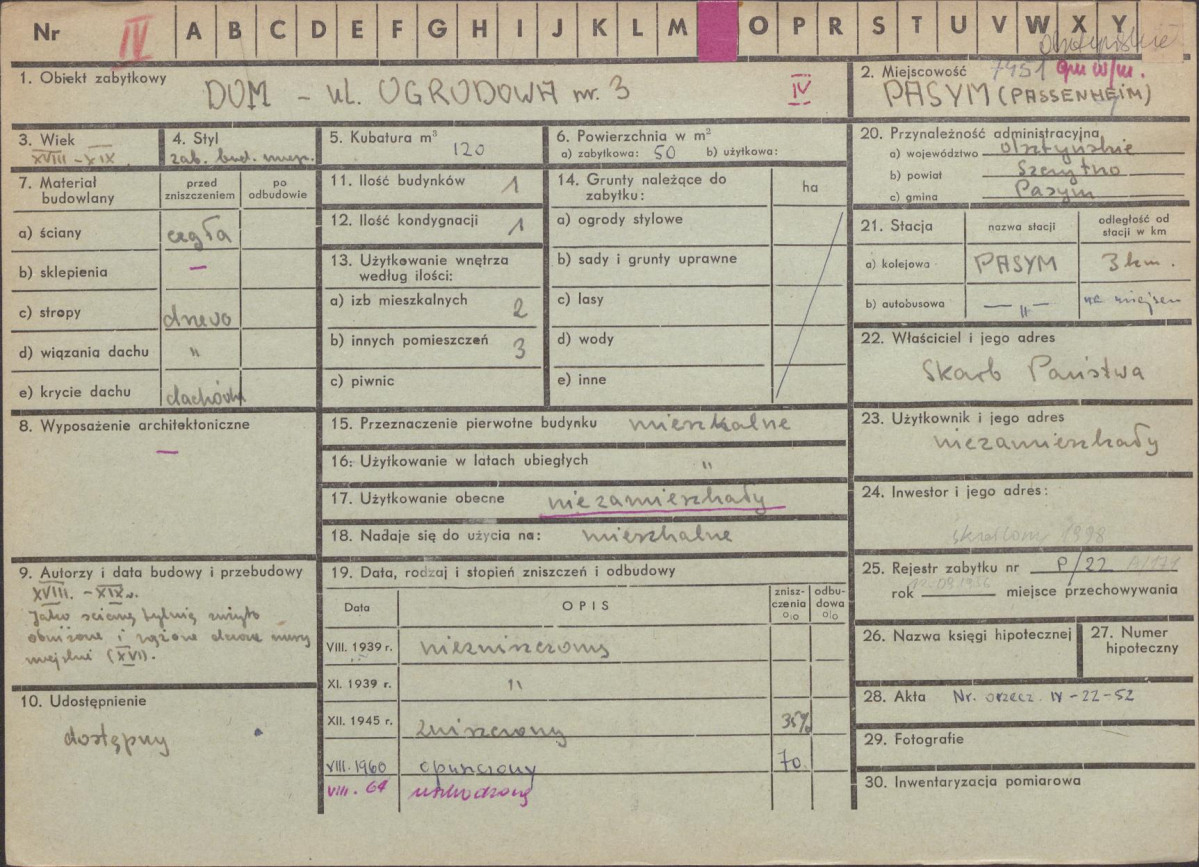 Nr IV A B C D E F G H I J K L M O P R S T U V W X Y
1. Obiekt zabytkowy DOM - ul. OGRODOWA nr. 3 IV
2. Miejscowość 7451 gm w/m.
PASYM (PASSENHEIM)
3. Wiek
XVIII - XIX
4. Styl
zab. bud. miejs.
5. Kubatura m³
120
6. Powierzchnia w m²
a) zabytkowa: 50 b) użytkowa:
20. Przynależność administracyjna
a) województwo olsztyńskie
b) powiat Szczytno
c) gmina Pasym
7. Materiał budowlany
przed zniszczeniem
po odbudowie
a) ściany cegła
b) sklepienia —
c) stropy drewo
d) wiązania dachu "
e) krycie dachu dachówka
11. Ilość budynków 1
12. Ilość kondygnacji 1
13. Użytkowanie wnętrza
według ilości:
a) izb mieszkalnych 2
b) innych pomieszczeń 3
c) piwnic
14. Grunty należące do
zabytku:
ha
a) ogrody stylowe
b) sady i grunty uprawne
c) lasy
d) wody
e) inne
21. Stacja
nazwa stacji
odległość od
stacji w km
a) kolejowa PASYM 3 km.
b) autobusowa — " — na miejscu
22. Właściciel i jego adres
Skarb Państwa
8. Wyposażenie architektoniczne
—
15. Przeznaczenie pierwotne budynku mieszkalne
16. Użytkowanie w latach ubiegłych "
17. Użytkowanie obecne niezamieszkały
18. Nadaje się do użycia na: mieszkalne
23. Użytkownik i jego adres
niezamieszkały
24. Inwestor i jego adres:
skreślono 1998
9. Autorzy i data budowy i przebudowy
XVIII. - XIX w.
Jako ścianę tylnią użyto
obniżone i dawne mury
miejskie (XVI).
19. Data, rodzaj i stopień zniszczeń i odbudowy
Data
OPIS
znisz-
czenia
%
odbu-
dowa
%
VIII. 1939 r. niezniszczony
XI. 1939 r. "
XII. 1945 r. zniszczony 35%
VIII. 1960 opuszczony 70
VIII. 64 uszkodzony
25. Rejestr zabytku nr P/22 A/179
rok miejsce przechowywania
26. Nazwa księgi hipotecznej
27. Numer
hipoteczny
28. Akta Nr. orzecz. IV - 22 - 52
29. Fotografie
30. Inwentaryzacja pomiarowa
10. Udostępnienie
dostępny